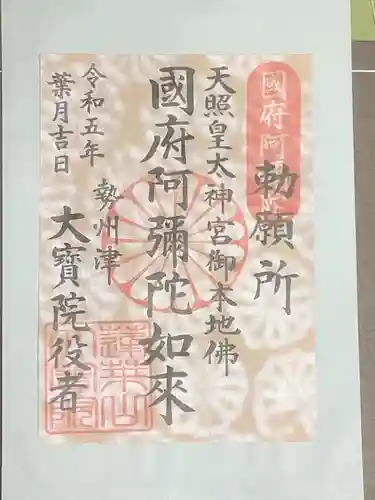 勅願所
國府阿
天照皇太神宮御本地佛
國府阿彌陀如來
勢州津
大寶院役者
令和五年
葉月吉日